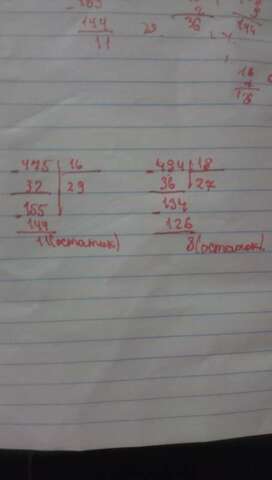 144
11
29
36
144
18
475 | 16
32 | 29
155
144
11(остаток)
494 | 18
36 | 27
134
126
8(остаток).